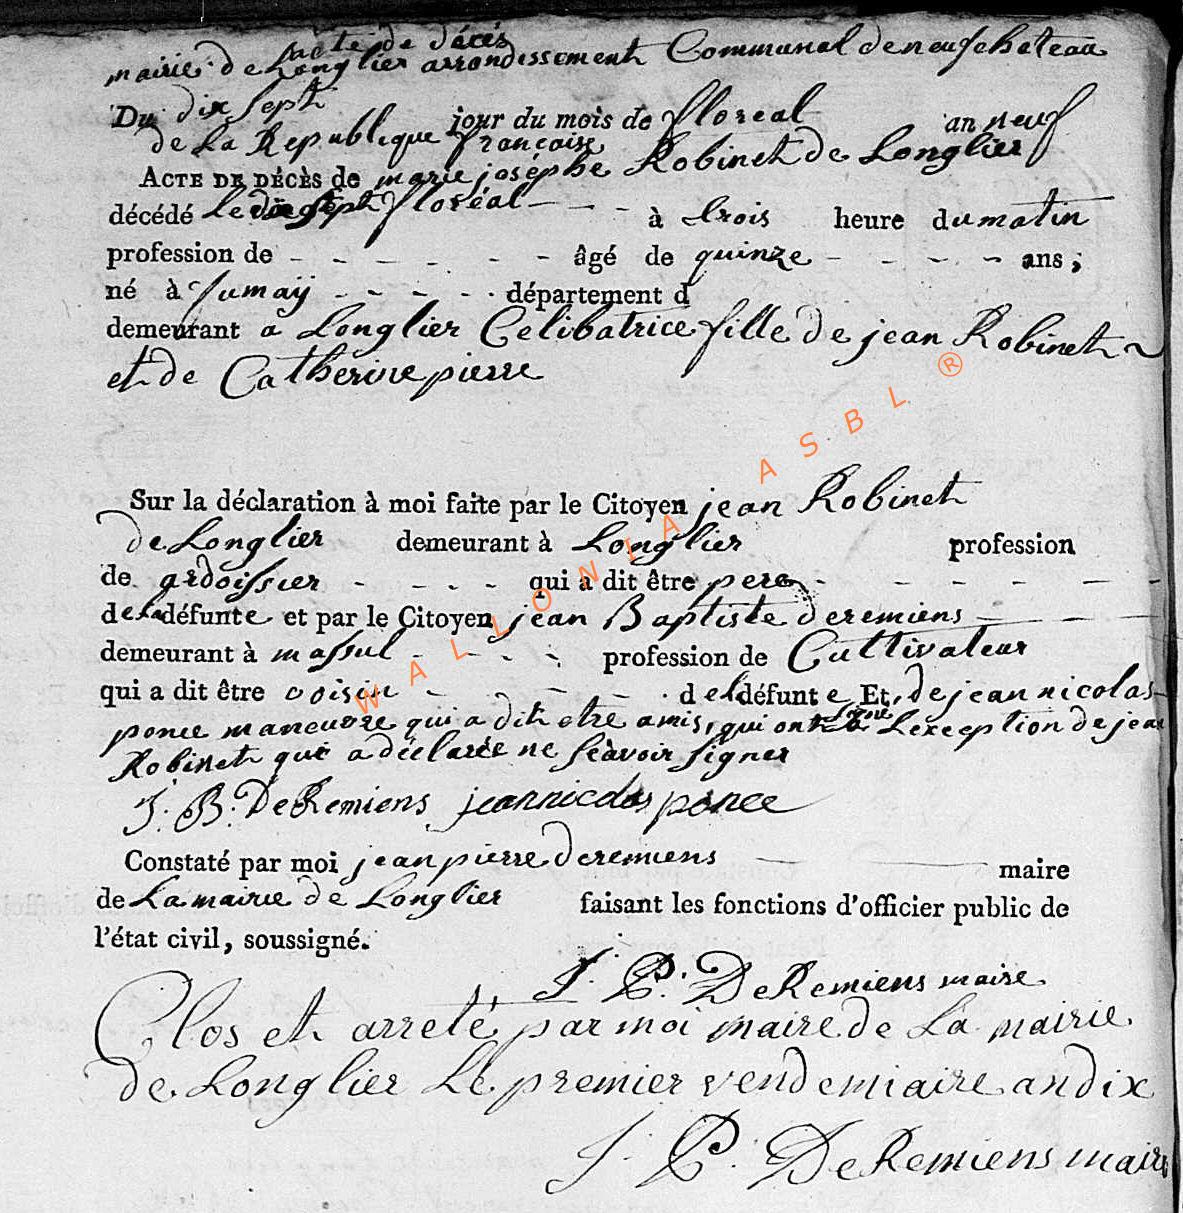 acte de décès
mairie de Longlier arrondissement Communal de neufchateau
Du dix sept jour du mois de floreal an neuf
de La Republique françoise
ACTE DE DÉCÈS de marie josephe Robinet de Longlier
décédé Le dix sept floréal - - - à trois heure du matin
profession de - - - - - - - âgé de quinze - - - - - ans,
né à Jumaÿ - - - - - département d
demeurant a Longlier Celibatrice fille de jean Robinet
et de Catherine pierre
Sur la déclaration à moi faite par le Citoyen jean Robinet
de Longlier demeurant à Longlier profession
de ardoissier - - - - - qui a dit être pere - - - - - - -
de la défunte et par le Citoyen jean Baptiste deremiens
demeurant à massul - - - - profession de Cultivateur
qui a dit être voisin - - - - de la défunte Et de jean nicolas
ponce maneuvre qui a dit etre amis, qui ont signé a L'exception de jean
Robinet qui a déclaré ne scavoir signer
J. B. DeRemiens jean nicolas ponce
Constaté par moi jean pierre deremiens maire
de La mairie de Longlier faisant les fonctions d'officier public de
l'état civil, soussigné.
J. P. DeRemiens maire
Clos et arreté par moi maire de La mairie
de Longlier Le premier vendemiaire an dix
J. P. DeRemiens maire
WALLONIA ASBL ®